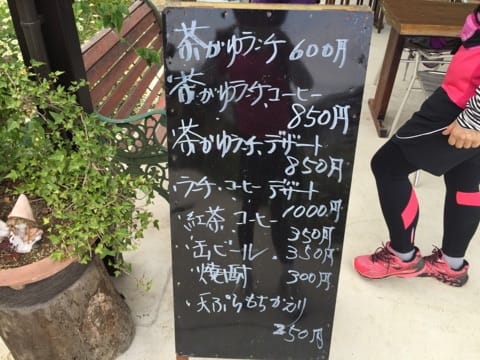 茶がゆランチ 600円
茶がゆランチ、コーヒー
850円
茶がゆランチ、デザート
850円
ランチ、コーヒー デザート
1000円
紅茶、コーヒー
350円
缶ビール 350円
焼酎 300円
天ぷらもちかえり
250円